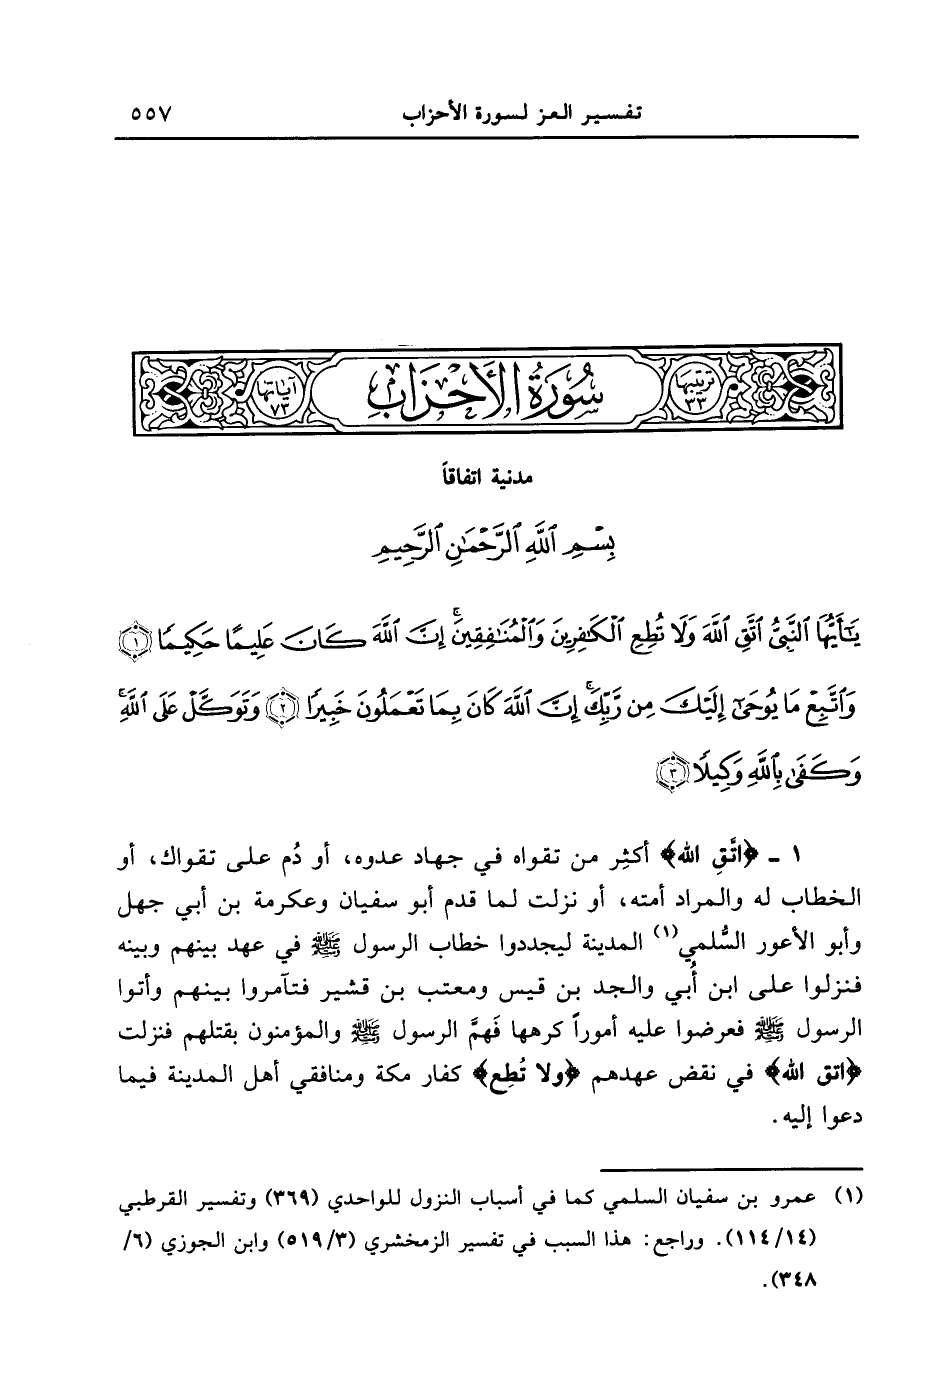 تفسير العز لسورة الأحزاب ٥٥٧
ترتيبها ٣٣ سُورَةُ الأَحْزَابِ آياتها ٧٣
مدنية اتفاقاً
بِسْمِ ٱللَّهِ ٱلرَّحْمَٰنِ ٱلرَّحِيمِ
يَٰٓأَيُّهَا ٱلنَّبِىُّ ٱتَّقِ ٱللَّهَ وَلَا تُطِعِ ٱلْكَٰفِرِينَ وَٱلْمُنَٰفِقِينَ ۗ إِنَّ ٱللَّهَ كَانَ عَلِيمًا حَكِيمًا ١
وَٱتَّبِعْ مَا يُوحَىٰٓ إِلَيْكَ مِن رَّبِّكَ ۚ إِنَّ ٱللَّهَ كَانَ بِمَا تَعْمَلُونَ خَبِيرًا ٢ وَتَوَكَّلْ عَلَى ٱللَّهِ ۚ
وَكَفَىٰ بِٱللَّهِ وَكِيلًا ٣
١ ـ ﴿اتَّقِ الله﴾ أكثِر من تقواه في جهاد عدوه، أو دُم على تقواك، أو
الخطاب له والمراد أمته، أو نزلت لما قدم أبو سفيان وعكرمة بن أبي جهل
وأبو الأعور السُّلمي(١) المدينة ليجددوا خطاب الرسول ﷺ في عهد بينهم وبينه
فنزلوا على ابن أُبي والجد بن قيس ومعتب بن قشير فتآمروا بينهم وأتوا
الرسول ﷺ فعرضوا عليه أموراً كرهها فَهمَّ الرسول ﷺ والمؤمنون بقتلهم فنزلت
﴿اتق الله﴾ في نقض عهدهم ﴿ولا تُطِع﴾ كفار مكة ومنافقي أهل المدينة فيما
دعوا إليه.
(١) عمرو بن سفيان السلمي كما في أسباب النزول للواحدي (٣٦٩) وتفسير القرطبي
(١١٤/١٤). وراجع: هذا السبب في تفسير الزمخشري (٥١٩/٣) وابن الجوزي (٦/
٣٤٨).